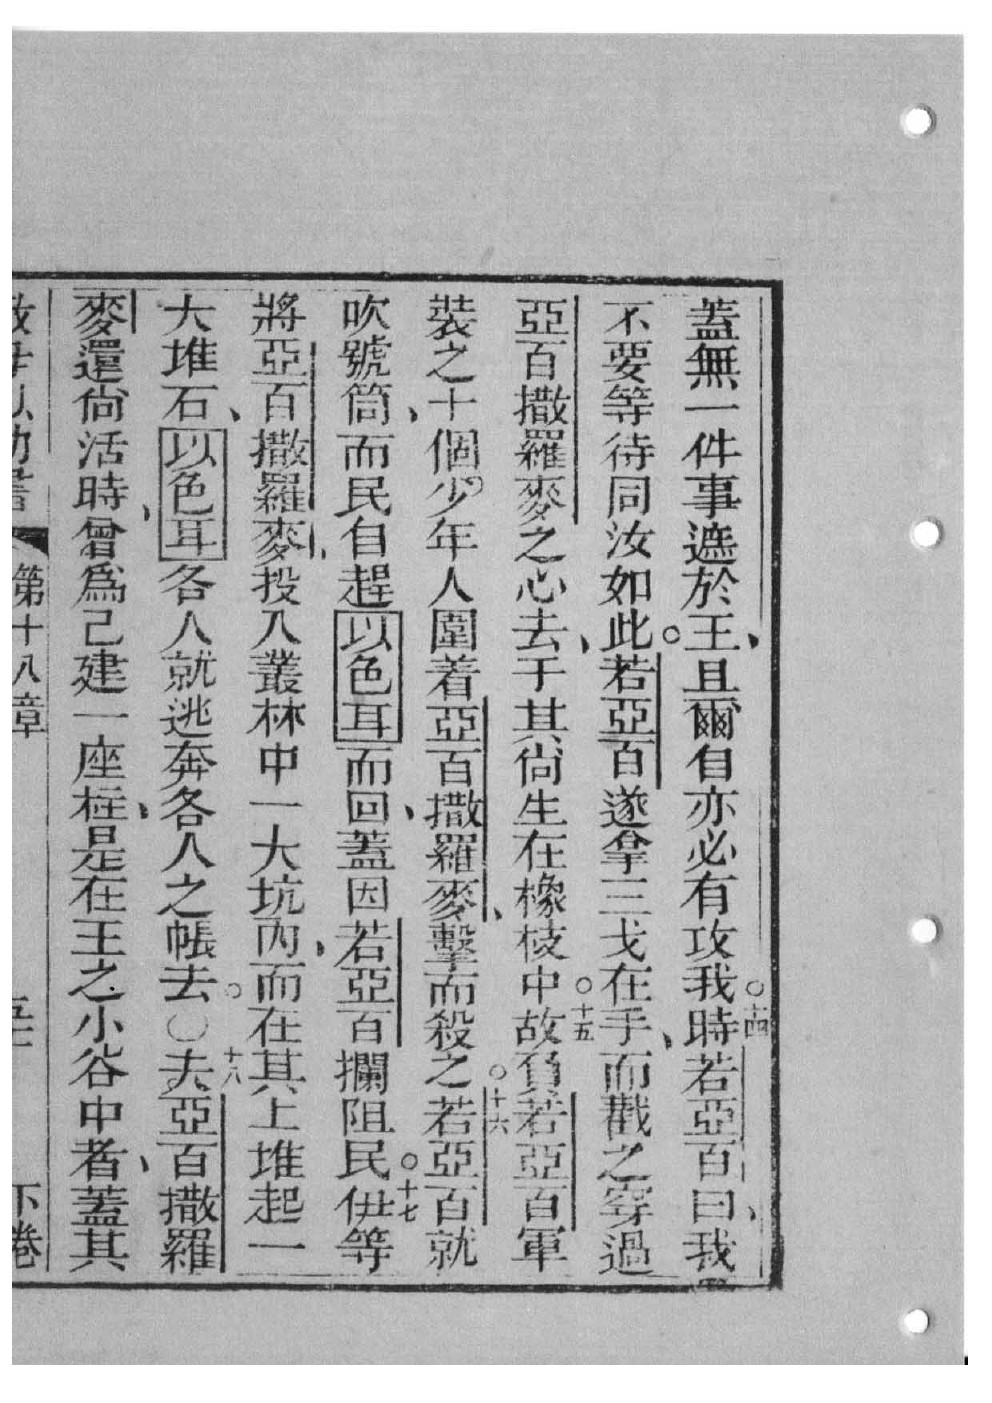 蓋無一件事遮於王、且爾自亦必有攻我時。十四若亞百曰、我
不要等待同汝如此。若亞百遂拿三戈在手、而戳之穿過
亞百撒羅麥之心去、于其尙生在橡枝中。十五故負若亞百軍
裝之十個少年人圍着亞百撒羅麥、擊而殺之。十六若亞百就
吹號筒、而民自趕以色耳而回、蓋因若亞百攔阻民。十七伊等
將亞百撒羅麥、投入叢林中一大坑內、而在其上堆起一
大堆石、以色耳各人就逃奔各人之帳去。〇十八夫亞百撒羅
麥還尙活時、曾爲己建一座柱、是在王之小谷中者、蓋其
第十八章 下卷